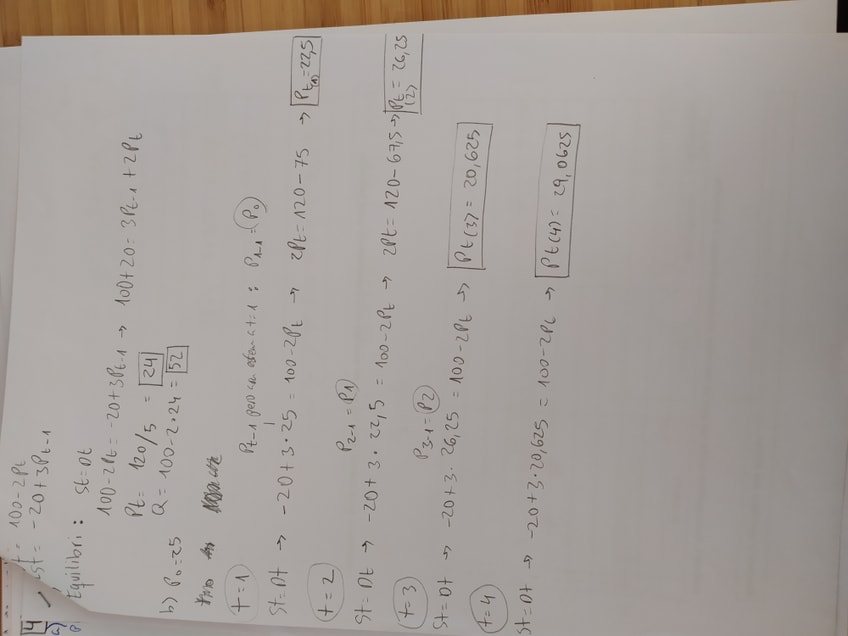 4
a)
= 100-2Pt
St = -20+3Pt-1
Equilibri: St=Dt
100-2Pt = -20+3Pt-1 → 100+20 = 3Pt-1 + 2Pt
Pt = 120/5 = 24
Q = 100-2·24 = 52
b) P0=25
Pt-1 pero en t=1 : P1-1 = P0
t=1
St=Dt → -20+3·25 = 100-2Pt → 2Pt=120-75 → Pt(1)=22,5
t=2 P2-1=P1
St=Dt → -20+3·22,5 = 100-2Pt → 2Pt=120-67,5 → Pt(2)=26,25
t=3 P3-1=P2
St=Dt → -20+3·26,25 = 100-2Pt → Pt(3)=20,625
t=4
St=Dt → -20+3·20,625 = 100-2Pt → Pt(4)=29,0625